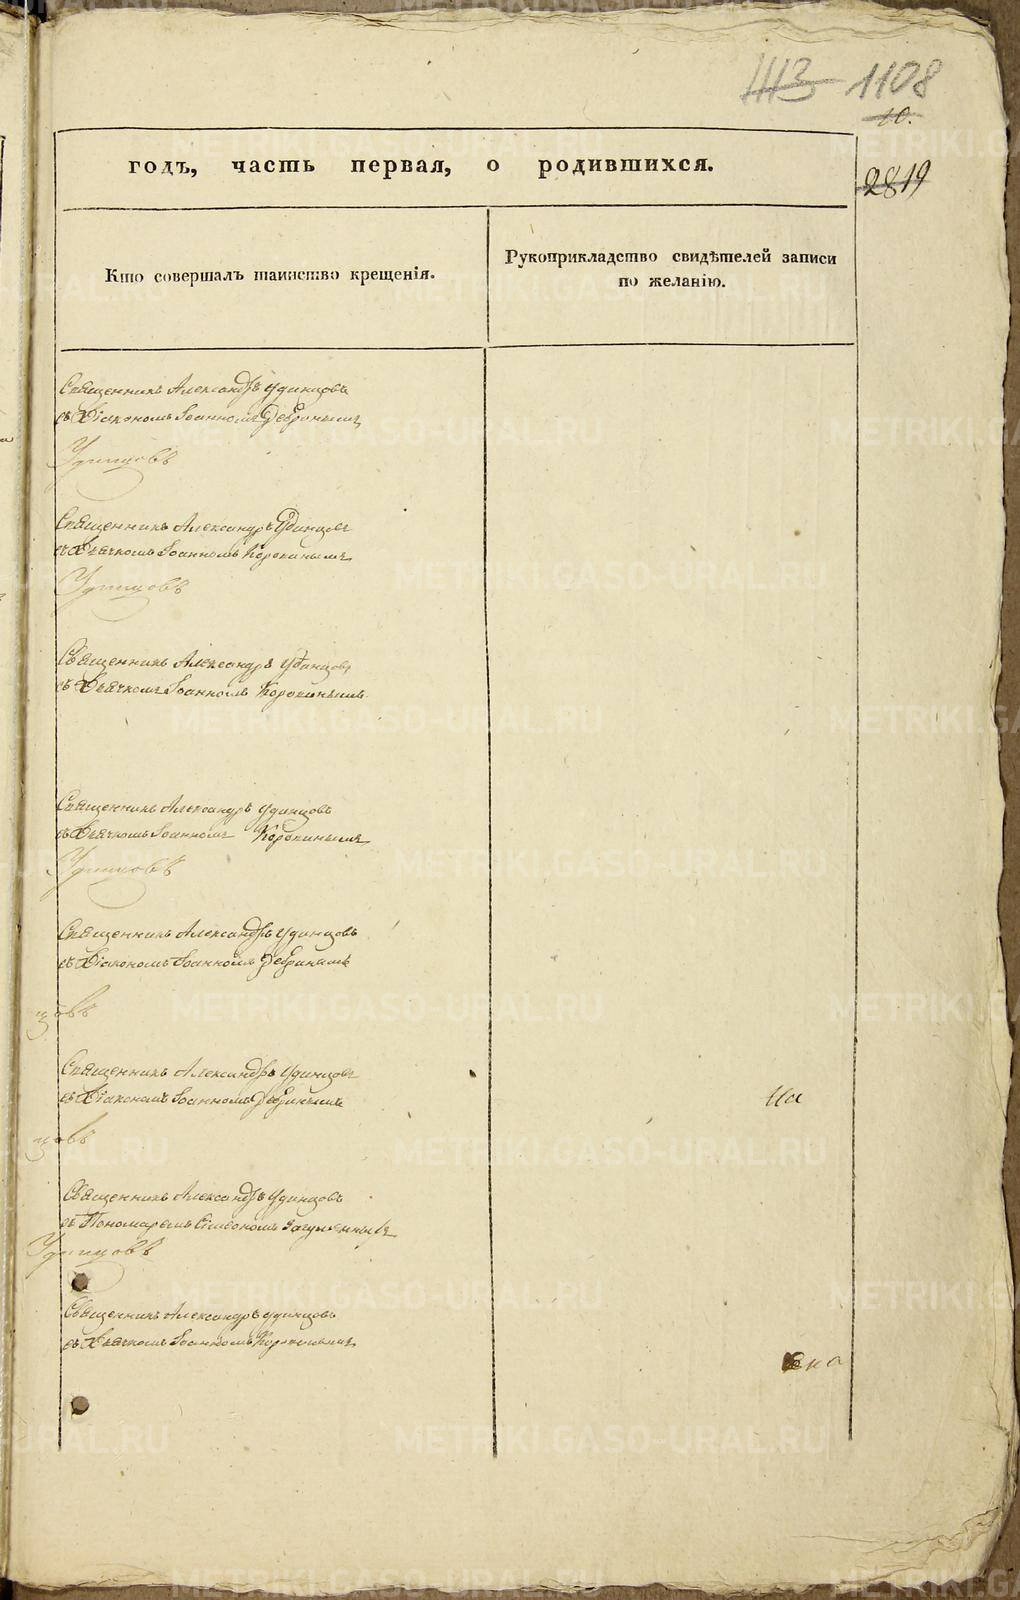 1113 1108
10.
2819
годъ, часть первая, о родившихся.
Кто совершалъ таинство крещенія.
Рукоприкладство свидѣтелей записи
по желанію.
Священникъ Александръ Удинцовъ
съ Діакономъ Іоанномъ
Удинцовъ
Священникъ Александръ Удинцовъ
съ Дьячкомъ Іоанномъ Коровинымъ
Удинцовъ
Священникъ Александръ Удинцовъ
съ Дьячкомъ Іоанномъ Коровинымъ
Священникъ Александръ Удинцовъ
съ Дьячкомъ Іоанномъ Коровинымъ
Удинцовъ
Священникъ Александръ Удинцовъ
съ Діакономъ Іоанномъ
цовъ
Священникъ Александръ Удинцовъ
съ Діакономъ Іоанномъ
цовъ
Священникъ Александръ Удинцовъ
съ Пономаремъ Симеономъ
Удинцовъ
Священникъ Александръ Удинцовъ
съ Дьячкомъ Іоанномъ Коровинымъ
METRIKI.GASO-URAL.RU